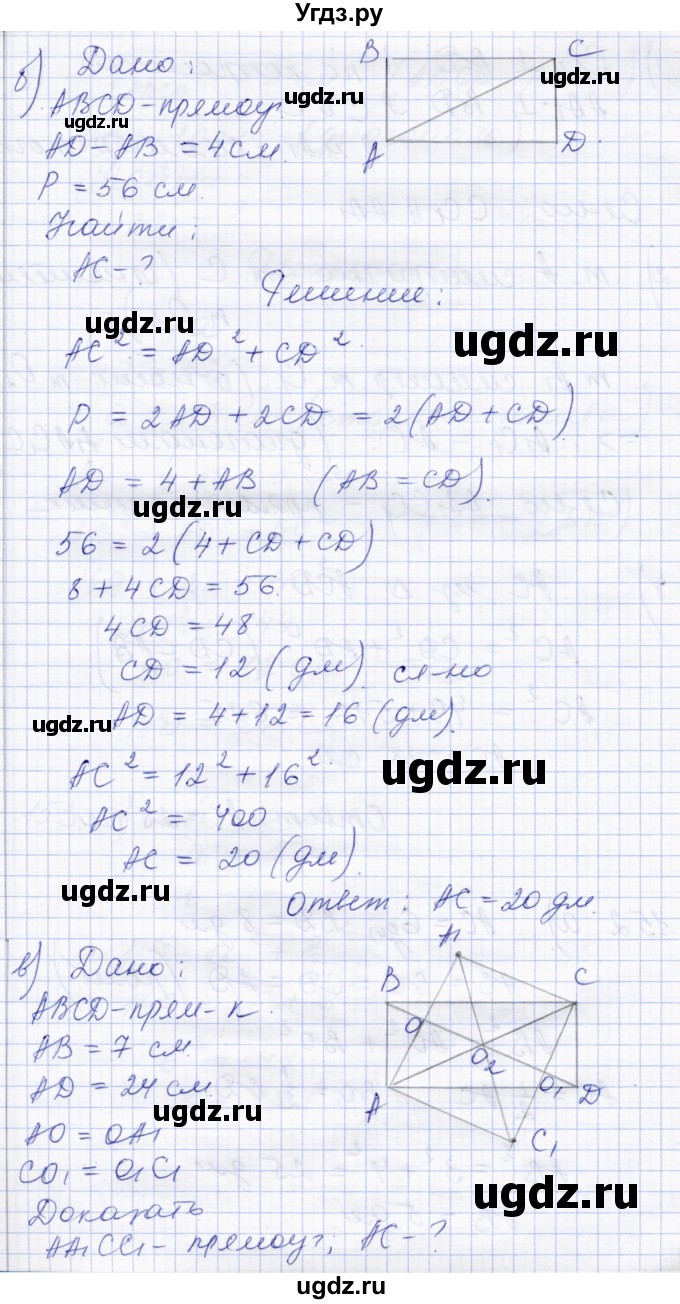 Угдз.ру
б) Дано:
ABCD-прямоуг.
AD-AB = 4 см.
P = 56 см.
Найти:
AC-?
B
C
A
D
Решение:
AC² = AD² + CD².
P = 2AD + 2CD = 2(AD + CD).
AD = 4 + AB (AB = CD).
56 = 2(4 + CD + CD)
8 + 4CD = 56.
4CD = 48
CD = 12 (дм). сл-но
AD = 4 + 12 = 16 (дм).
AC² = 12² + 16².
AC² = 400
AC = 20 (дм).
Ответ: AC = 20 дм.
в) Дано:
ABCD-прям-к.
AB = 7 см.
AD = 24 см.
AO = OA1
CO1 = O1C1
Доказать
AA1CC1 - прямоуг; AC-?
A1
B
C
O
O2
O1
A
D
C1
ugdz.ru
ugdz.ru
ugdz.ru
ugdz.ru
ugdz.ru
ugdz.ru
ugdz.ru
ugdz.ru
ugdz.ru
ugdz.ru
ugdz.ru
ugdz.ru
ugdz.ru